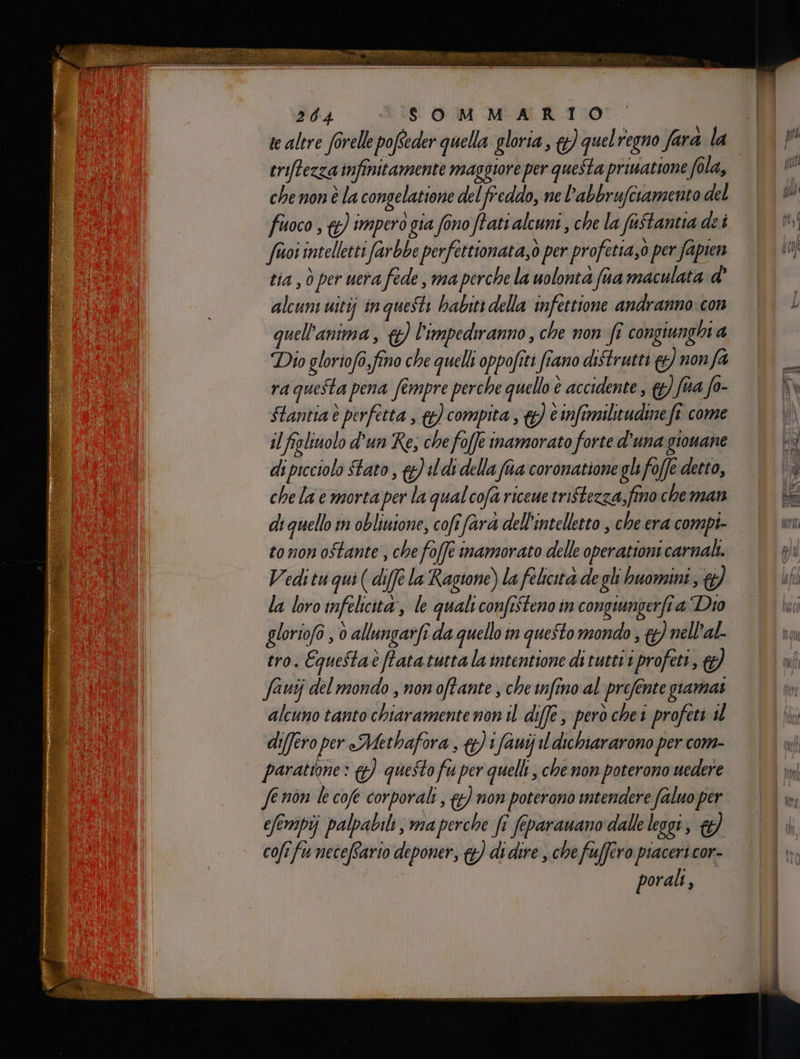 264 SOMMARIO
te altre ſorelle poſſeder quella gloria, & quel regno ſarà la
triſtezza infinitamente maggiore per queſta priuatione ſola,
che non è la congelatione del freddo, ne l'abbruſciamento del
fuoco, & imperò gia ſono ſtati alcuni, che la ſuſtantia dei
ſuoi intelletti ſarbbe perfettionata, ò per profetia, ò per ſapien
tia, ò per uera fede, ma perche la uolontà ſua maculata d'
alcuni uitij in queſti habiti della infettione andranno con
quell'anima, & l'impediranno, che non ſi congiunghi a
Dio glorioſo, fino che quelli oppoſiti ſiano diſtrutti & non ſa
ra queſta pena ſempre perche quello è accidente, & ſua ſo-
ſtantia è perfetta, & compita, & è inſimilitudine ſi come
il figliuolo d'un Re, che foſſe inamorato forte d'una giouane
di picciolo ſtato, & il di della ſua coronatione gli foſſe detto,
che la e morta per la qual coſa riceue triſtezza, fino che man
di quello in obliuione, coſi ſarà dell'intelletto, che era compi-
to non oſtante, che foſſe inamorato delle operationi carnali.
Vedi tu qui ( diſſe la Ragione) la felicità de gli huomini, &
la loro infelicità, le quali conſiſteno in congiungerſi a Dio
glorioſo, ò allungarſi da quello in queſto mondo, & nell'al-
tro. Equeſta è ſtata tutta la intentione di tutti i profeti, &
ſauij del mondo, non oſtante, che infino al preſente giamai
alcuno tanto chiaramente non il diſſe, però che i profeti il
diſſero per Methafora, & i ſauij il dichiararono per com-
paratione: & queſto fu per quelli, che non poterono uedere
ſe non le coſe corporali, & non poterono intendere ſaluo per
eſempij palpabili, ma perche ſi ſeparauano dalle leggi, &
coſi fu neceſſario deponer, & di dire, che fuſſero piaceri cor-
porali,